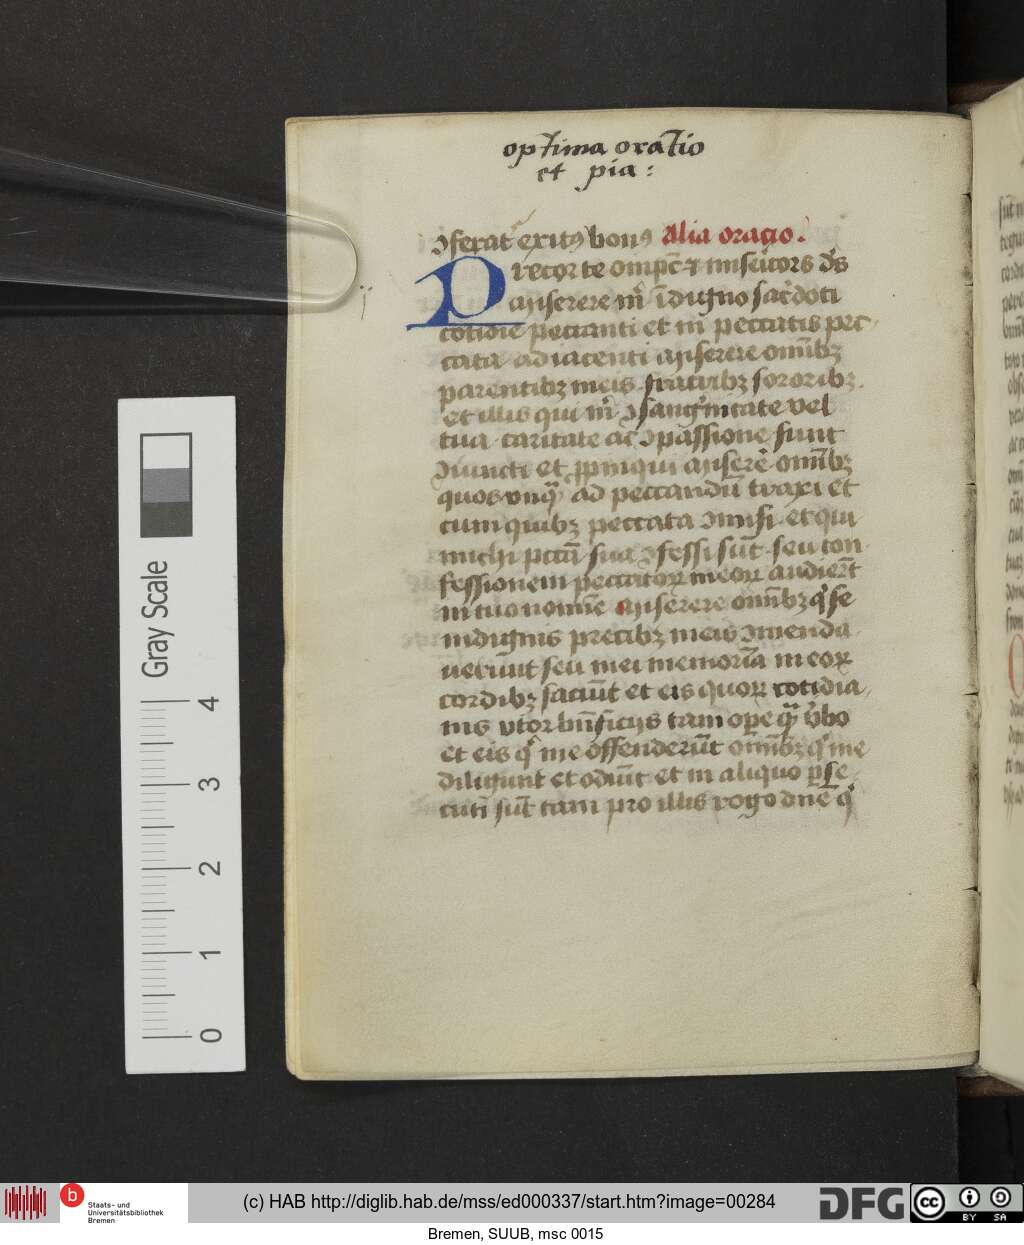 optima oratio
et pia:
ɔferat exitꝰ bonꝰ Alia oracio.
Precor te om̅pc̅ ⁊ misericors ds̅
Miserere m̅ i̅digno sac̅doti
cotidie peccanti et in peccatis pec
cata adiacenti Miserere om̅ibꝫ
parentibꝫ meis fratribꝫ sororibꝫ.
et illis qui m̅ ɔsang̅nitate vel
tua caritate ac ɔpassione sunt
ɔiuncti et ꝓpinqui Miserere om̅ibꝫ
quos vnqꝫ ad peccandu̅ traxi et
cum quibꝫ peccata ɔmisi et qui
michi pcca̅ sua ɔfessi su̅t seu con
fessionem peccatoꝝ meoꝝ audier̅t
in tuo nomi̅e Miserere om̅ibꝫ q̇ se
indignis precibꝫ meis ɔmenda
ueru̅nt seu mei memoria̅ in eoꝝ
cordibꝫ faciu̅t et eis quoꝝ cotidia
nis vtor bn̅ficijs tam oꝑe qꝫ v̅bo
et eis q̇ me offenderu̅t om̅ibꝫ q̇ me
diligunt et odiu̅t et in aliquo ꝑse
cuti su̅t tam pro illis rogo dne̅ q̇
Gray Scale
4
3
2
1
0
b Staats- und
Universitätsbibliothek
Bremen
(c) HAB http://diglib.hab.de/mss/ed000337/start.htm?image=00284
DFG
cc BY SA
Bremen, SUUB, msc 0015